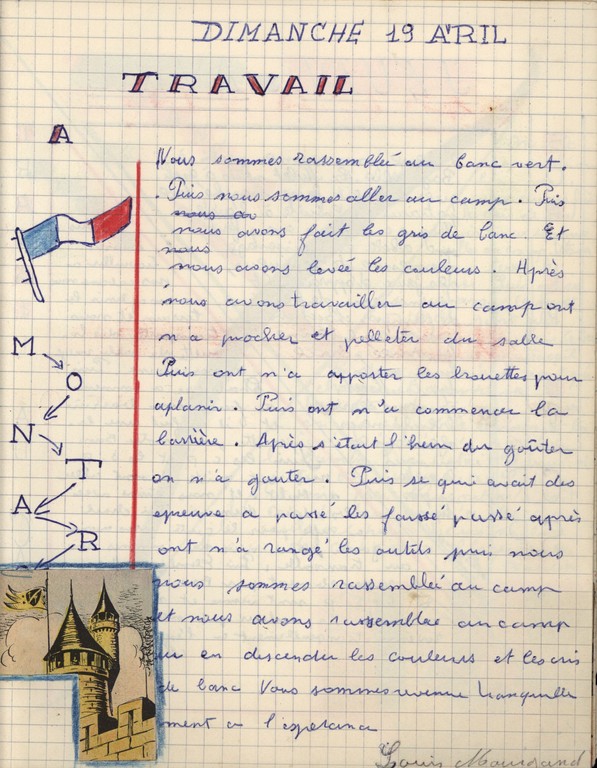 DIMANCHE 19 AVRIL
TRAVAIL
A
M
O
N
T
A
R
Nous sommes rassemblée au banc vert.
. Puis nous sommes aller au camp. Puis
nous av
nous avons fait les gris de banc. Et
nous
nous avons levée les couleurs. Après
nous avons travailler au camp ont
n'a piocher et pelleter du salle
Puis ont n'a apporter les brouettes pour
aplanir. Puis ont n'a commencer la
barrière. Après s'était l'heur du goûter
on n'a gouter. Puis se qui avait des
epreuve a passé les faussé passé après
ont n'a rangé les outils puis nous
nous sommes rassemblée au camp
et nous avons rassemblée au camp
en descender les couleurs et les cris
de banc Nous sommes revenu tranquille
ment a l'esperance
Louis